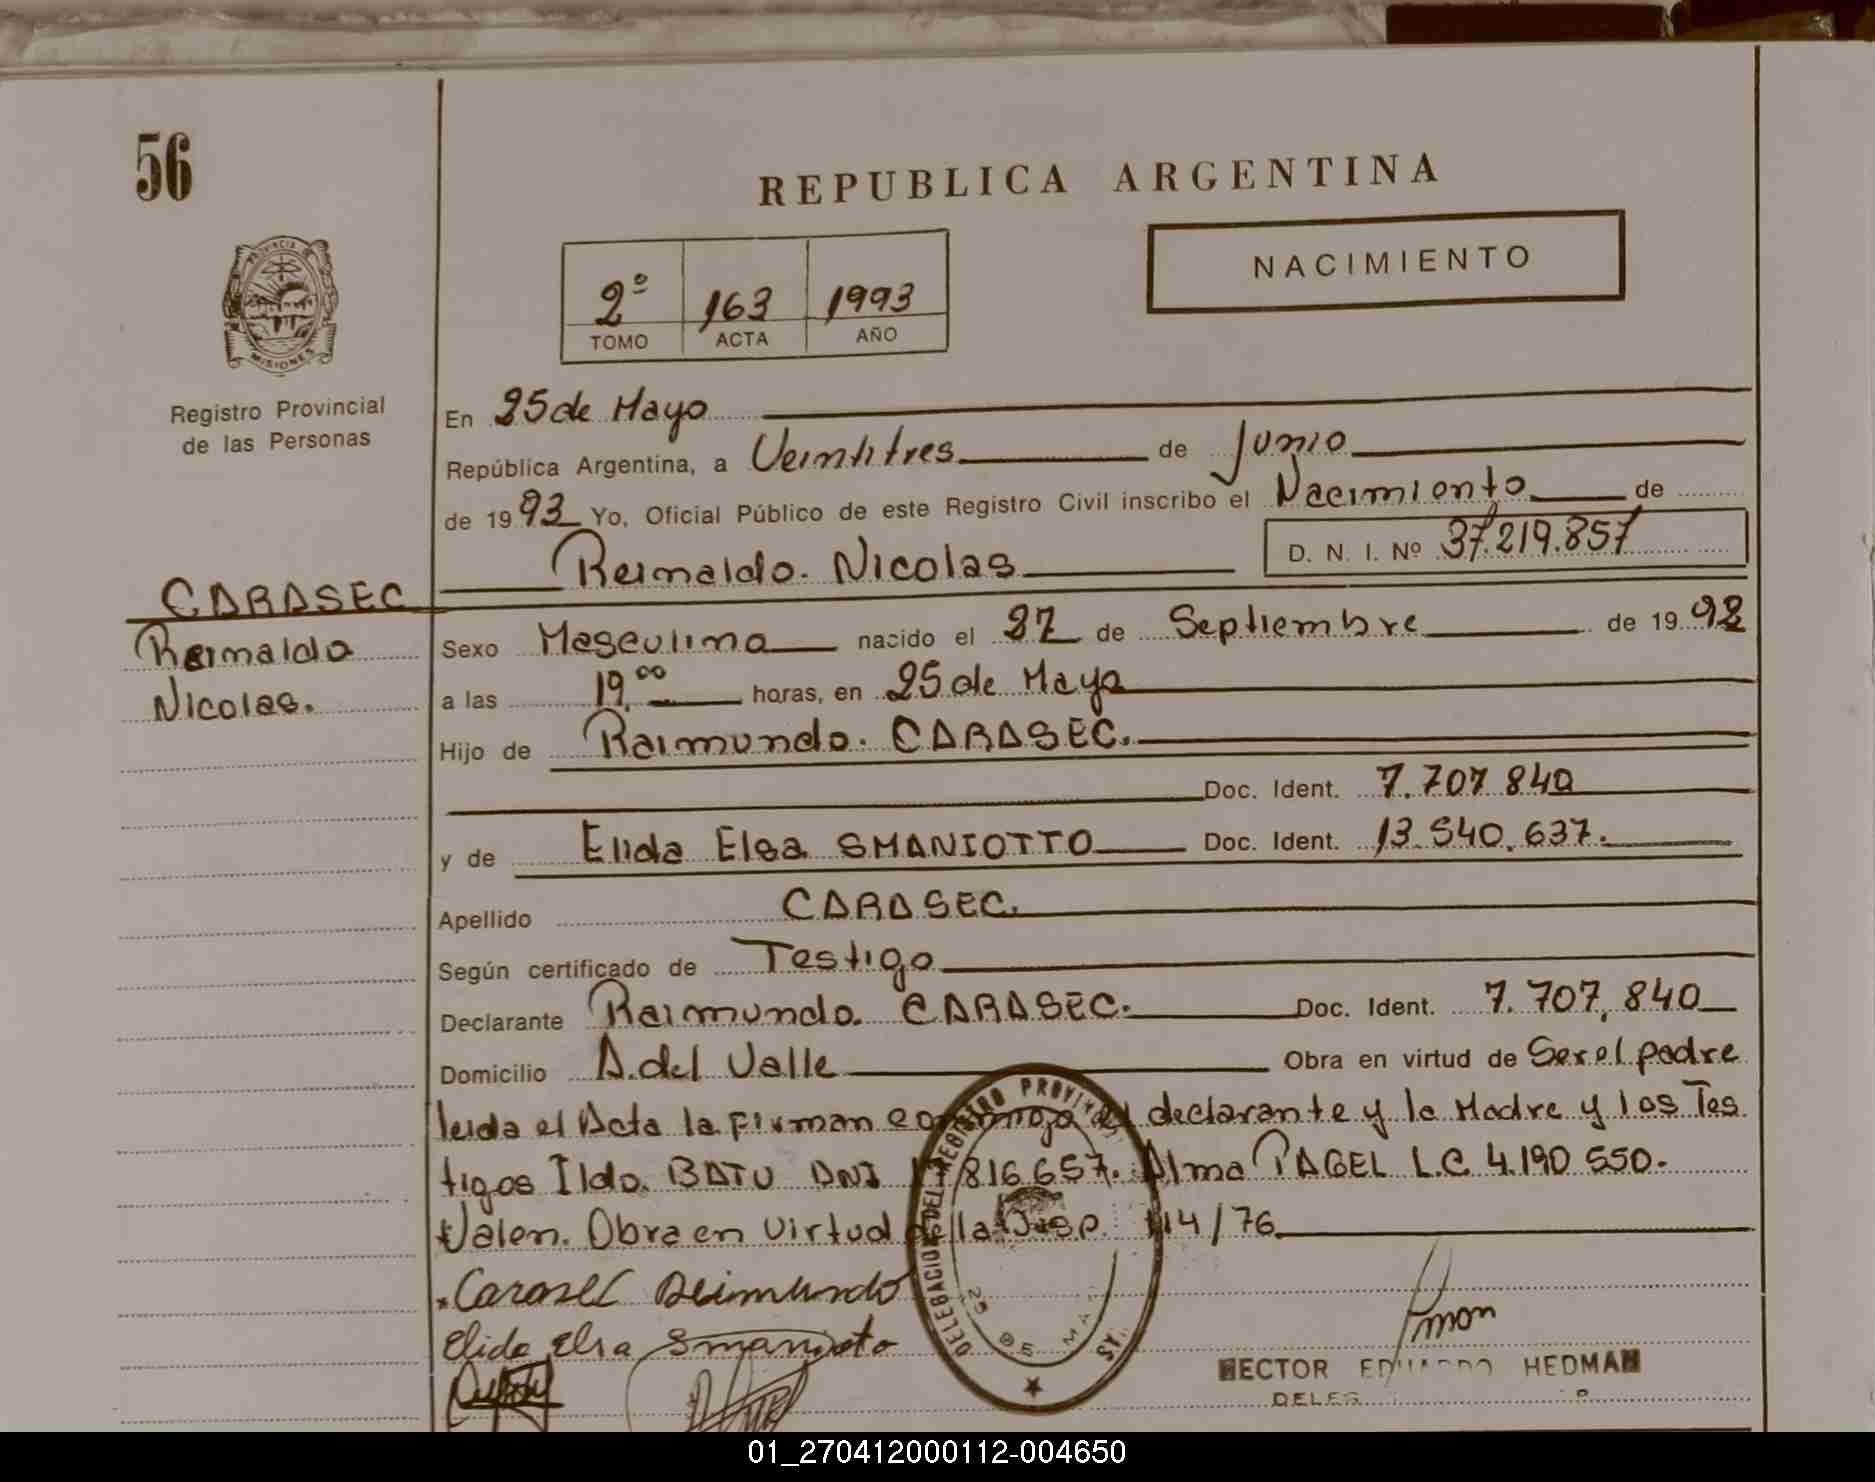 56
REPUBLICA ARGENTINA
NACIMIENTO
2º 163 1993
TOMO ACTA AÑO
PROVINCIA DE
MISIONES
Registro Provincial
de las Personas
En 25 de Mayo
República Argentina, a Veintitres de Junio
de 1993 Yo, Oficial Público de este Registro Civil inscribo el Nacimiento de
Reinaldo. Nicolas D. N. I. Nº 37.219.857
CARASEC
Reinaldo
Nicolas.
Sexo Masculino nacido el 27 de Septiembre de 1992
a las 19,00 horas, en 25 de Mayo
Hijo de Raimundo. CARASEC.
Doc. Ident. 7.707 840
y de Elida Elsa SMANIOTTO Doc. Ident. 13.540.637.
Apellido CARASEC.
Según certificado de Testigo
Declarante Raimundo. CARASEC. Doc. Ident. 7.707,840
Domicilio A. del Valle Obra en virtud de Ser el padre
leida el Acta la Firman conmigo el declarante y la Madre y los Tes
tigos Ildo. BATU DNI 17 816 657. Alma PAGEL L.C. 4.190 550.
Valen. Obra en Virtud de la Disp. 114/76
Carasec Reimundo
Elida Elsa Smanioto
DELEGACION DEL REGISTRO PROVINCIAL
25 DE MAYO
HECTOR EDUARDO HEDMAN
01_270412000112-004650